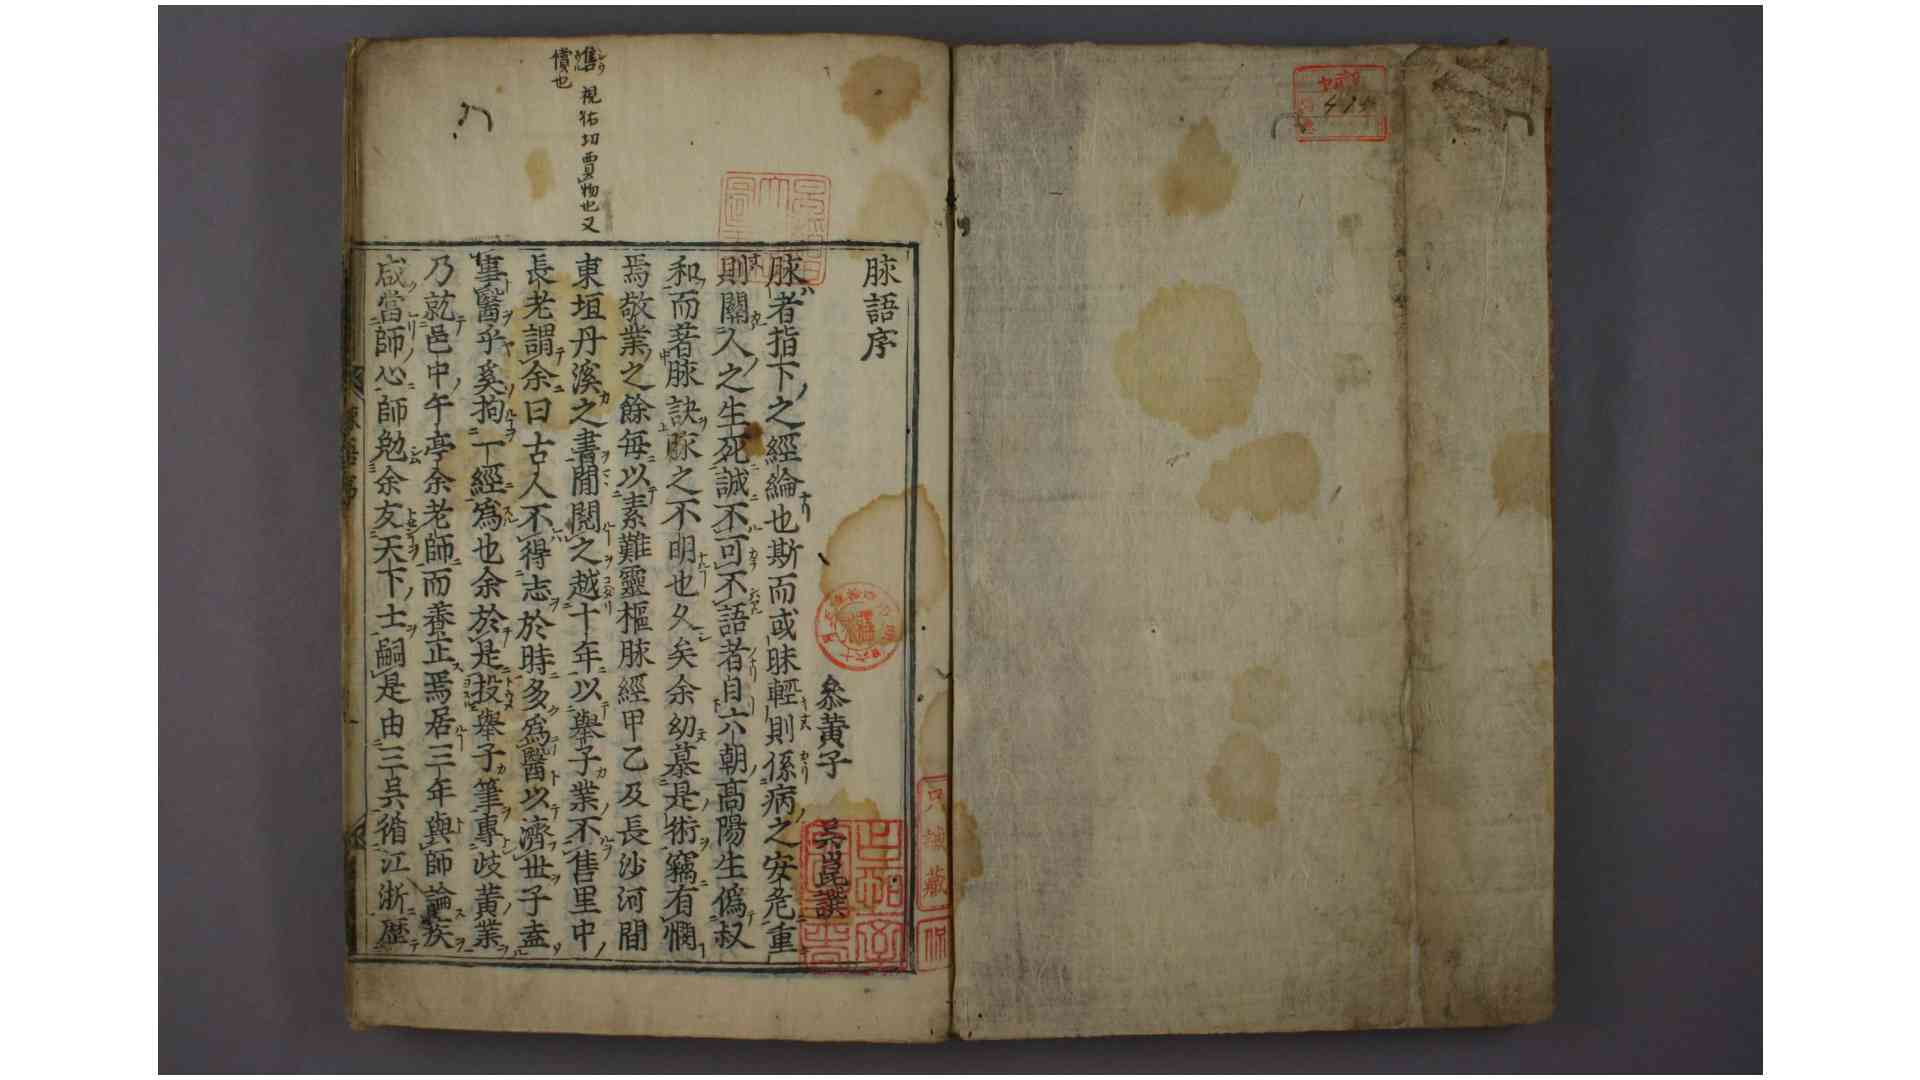 脉語序
叅黄子　吳崑譔
脉者指下之經綸也斯而或昧輕則係病之安危重
則關人之生死誠不可不語者自六朝高陽生偽叔
和而著脉訣脉之不明也久矣余幼慕是術竊有憫
焉敬業之餘每以素難靈樞脉經甲乙及長沙河間
東垣丹溪之書閒閱之越十年以舉子業不售里中
長老謂余曰古人不得志於時多爲醫以濟世子盍
事醫乎奚拘一經爲也余於是投舉子筆專岐黄業
乃就邑中午亭余老師而養正焉居三年與師論疾
咸當師心師勉余友天下士嗣是由三吳循江浙歴
售 視祐切賣物也又
償也